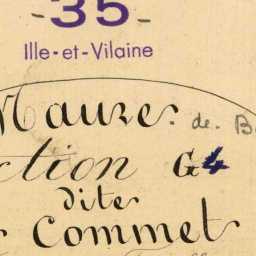 -35-
Ille-et-Vilaine
Maure. de. B
ction G4
dite
Commet